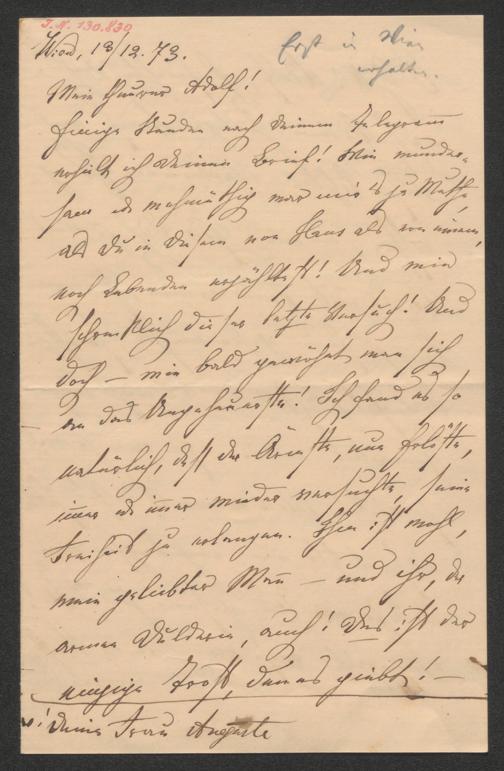 I.N. 130.830
Wien, 13/12. 73.
Erst in Wien
erhalten.
Mein theurer Adolf!
Einige Stunden nach Deinem Telegramm
erhielt ich Deinen Brief! Wie wunder-
sam und wehmüthig war mir's zu Muthe,
als Du in diesem von Hans als von einem
noch Lebenden erzähltest! Und wie
schrecklich dieser letzte Versuch! Und
doch – wie bald gewöhnt man sich
an das Ungeheuerste! Ich fand es so
natürlich, daß der Ärmste, nur
immer und immer wieder versuchte, seine
Freiheit zu erlangen. Ihm ist wohl,
mein geliebter Mann – und ihr, der
armen Dulderin, auch! Das ist der
einzige Trost, den es giebt! –
Deine Frau Auguste